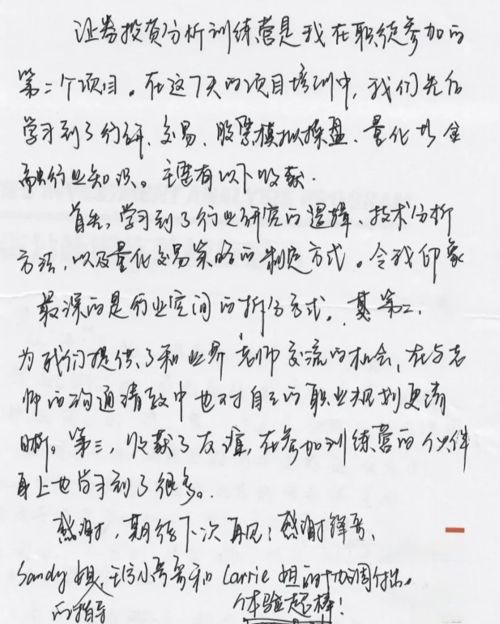 证券投资分析训练营是我在职徒参加的
第二个项目。在这7天的项目培训中，我们先后
学习到了行研、交易、股票模拟操盘、量化等金
融行业知识。主要有以下收获.
首先，学习到了行业研究的逻辑、技术分析
方法，以及量化交易策略的制定方式。令我印象
最深的是行业空间的拆分方式。其第二，
为我们提供了和业界老师交流的机会，在与老
师的沟通请教中也对自己的职业规划更清
晰。第三，收获了友谊，在参加训练营的小伙伴
身上也学习到了很多。
感谢，期待下次再见！感谢
Sandy姐、和Carrie姐的协调付出。
的指导 体验超棒！